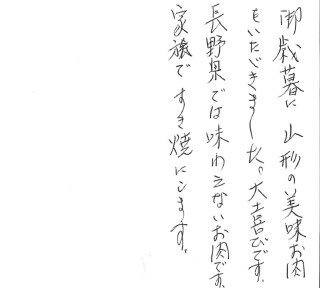 御歳暮に山形の美味お肉
をいただきました。大喜びです。
長野県では味わえないお肉です。
家族ですき焼にします。